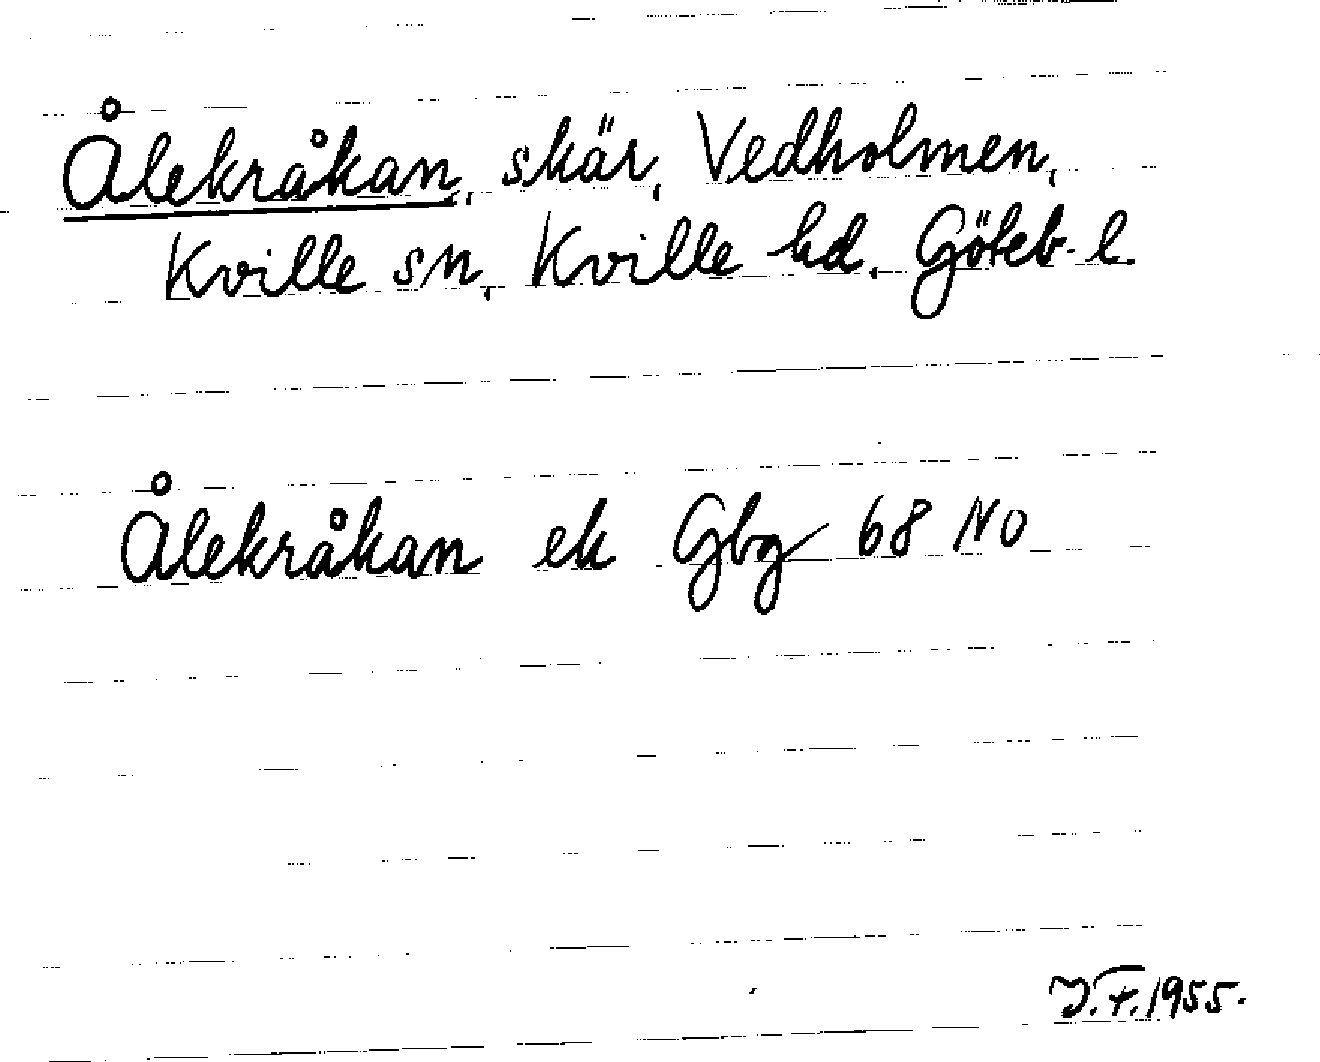 Ålekråkan, skär, Vedholmen,
Kville sn, Kville hd. Göteb. l.
Ålekråkan ek Gbg 68 NO
J.F. 1955.